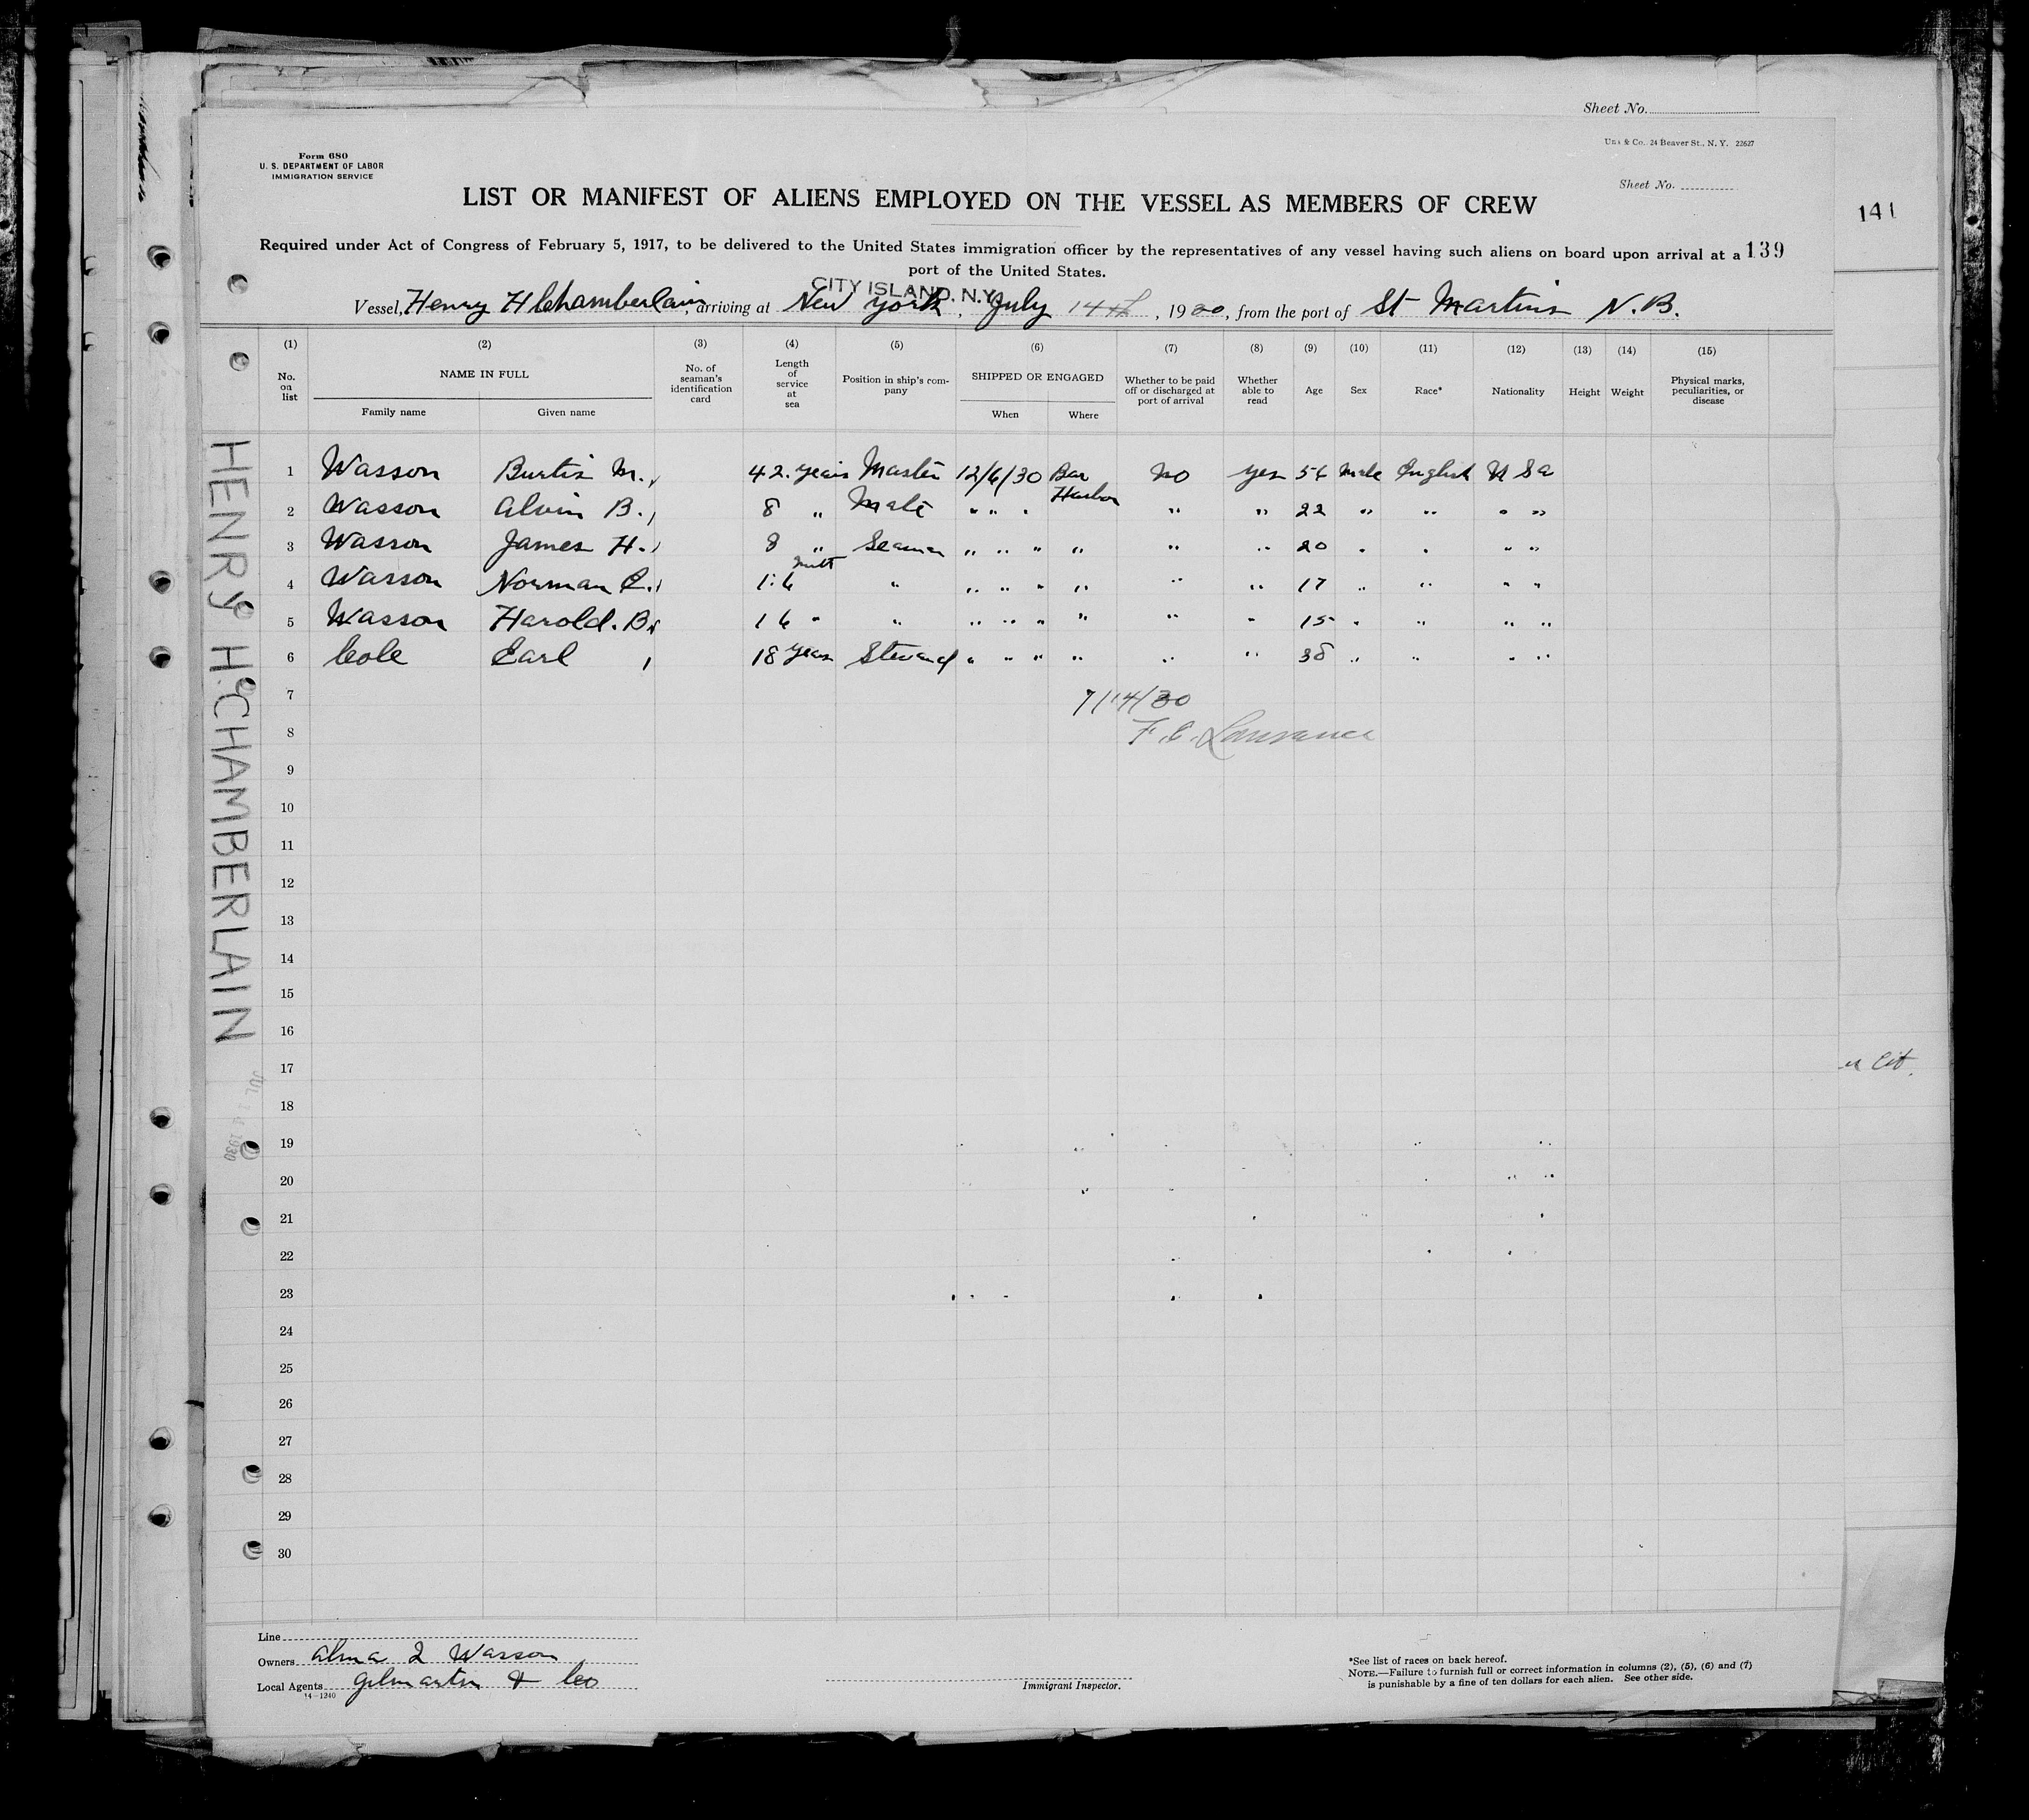 Sheet No.
Form 680
U. S. DEPARTMENT OF LABOR
IMMIGRATION SERVICE
& Co., 24 Beaver St., N. Y. 22627
Sheet No.
LIST OR MANIFEST OF ALIENS EMPLOYED ON THE VESSEL AS MEMBERS OF CREW
141
Required under Act of Congress of February 5, 1917, to be delivered to the United States immigration officer by the representatives of any vessel having such aliens on board upon arrival at a 139
port of the United States.
CITY ISLAND, N.Y.
Vessel, Henry H Chamberlain, arriving at New York, July 14th, 1930, from the port of St Martins N.B.
(1) (2) (3) (4) (5) (6) (7) (8) (9) (10) (11) (12) (13) (14) (15)
No. on list NAME IN FULL No. of seaman's identification card Length of service at sea Position in ship's company SHIPPED OR ENGAGED Whether to be paid off or discharged at port of arrival Whether able to read Age Sex Race* Nationality Height Weight Physical marks, peculiarities, or disease
Family name Given name When Where
1 Wasson Burtis M. 42 years Master 12/6/30 Bar Harbor No yes 54 Male English U S a
2 Wasson Alvin B. 8 " Mate " " " " " 22 " " " "
3 Wasson James H. 8 " Seaman " " " " " " 20 " " " "
4 Wasson Norman C. 1:6 " " " " " " " 17 " " " "
5 Wasson Harold. B. 16 " " " " " " " " 15 " " " "
6 Cole Earl 18 years Steward " " " " " " 38 " " " "
7 7/14/30
8 F. C. Lawrance
9
10
11
12
13
14
15
16
17
18
19
20
21
22
23
24
25
26
27
28
29
30
HENRY H. CHAMBERLAIN
JUL 14 1930
Cit.
Line
Owners Alma L Wasson
Local Agents Gilmartin & Co
14-1240
Immigrant Inspector.
*See list of races on back hereof.
NOTE.—Failure to furnish full or correct information in columns (2), (5), (6) and (7)
is punishable by a fine of ten dollars for each alien. See other side.